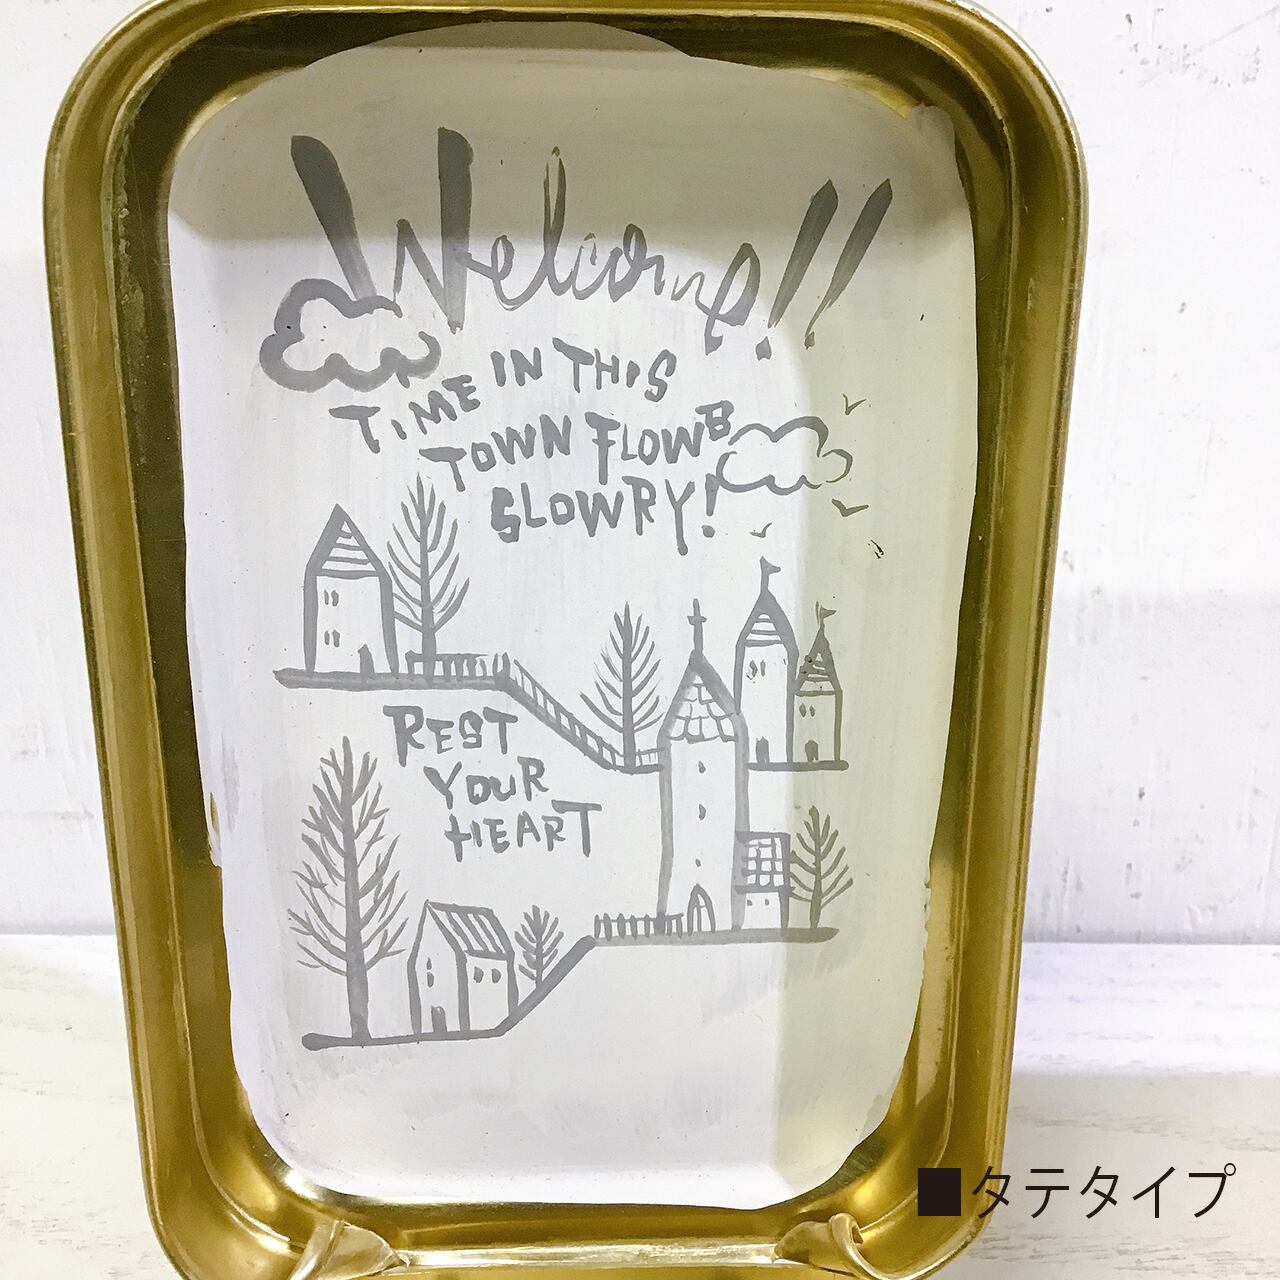 Welcome!!
TiME IN THiS
TOWN FLOWS
SLOWRY!
REST
YOUR
HEART
■タテタイプ